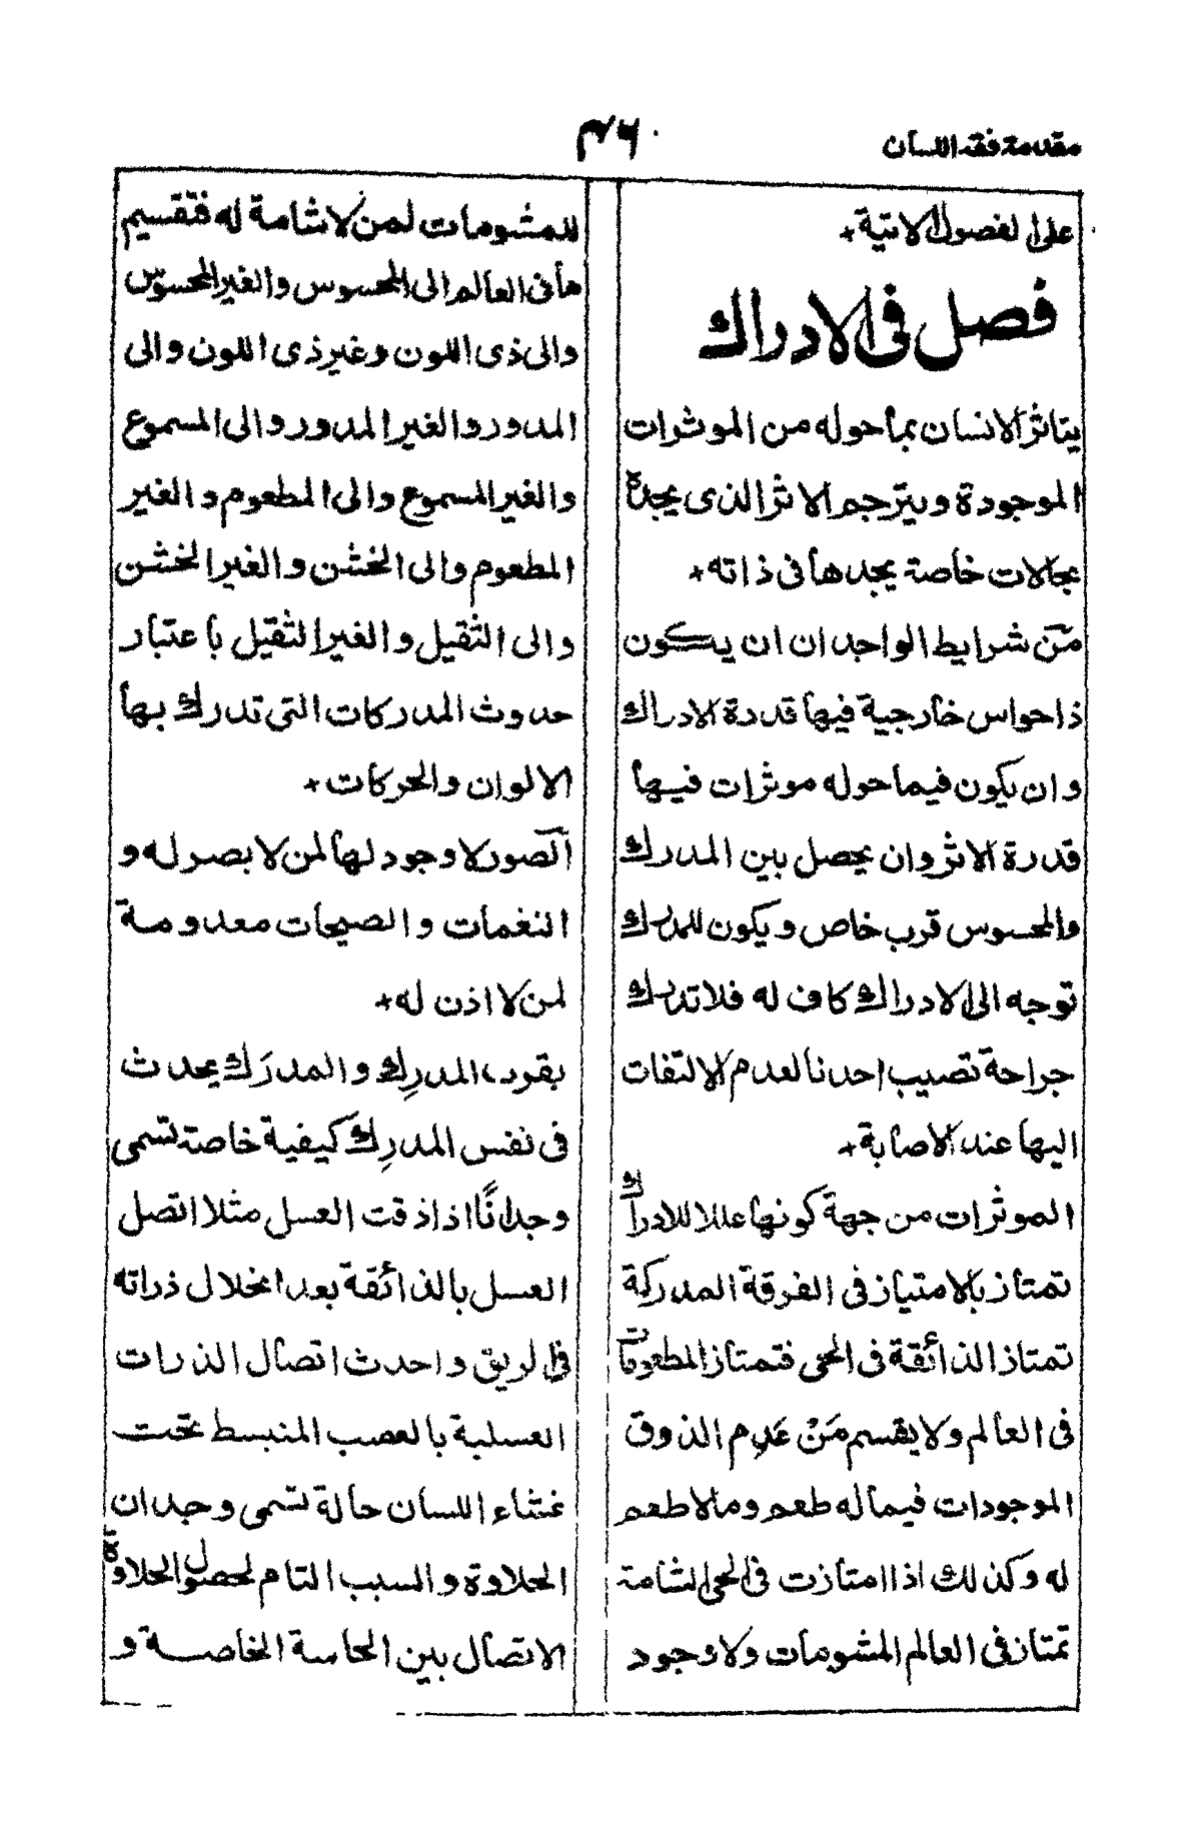 مقدمة فقه اللسان
٣٦
على الفصول الاتية+
فصل فى الادراك
يتاثر الانسان بما حوله من الموثرات
الموجودة ويترجم الاثر الذى يجدة
بحالات خاصة يجدها فى ذاته+
من شرايط الواجد ان ان يكون
ذا حواس خارجية فيها قدرة الادراك
وان يكون فيما حوله موثرات فيها
قدرة الاثر وان يحصل بين المدرك
والمحسوس قرب خاص ويكون للمدرك
توجه الى الادراك كاف له فلا تدرك
جراحة تصيب احدنا لعدم الالتفات
اليها عند الاصابة+
الموثرات من جهة كونها عللا للادراك
تمتاز بالامتياز فى الفرقة المدركة
تمتاز الذائقة فى الحى فتمتاز المطعومات
فى العالم ولا يقسم مَنْ عَدِم الذوق
الموجودات فيما له طعم وما لا طعم
له وكذلك اذا امتازت فى الحى الشامة
تمتاز فى العالم المشومات ولا وجود
للمشومات لمن لا شامة له فتقسيم
ما فى العالم الى المحسوس والغير المحسوس
والى ذى اللون وغير ذى اللون والى
المدور والغير المدور والى المسموع
والغير المسموع والى المطعوم والغير
المطعوم والى الخشن والغير الخشن
والى الثقيل والغير الثقيل باعتبار
حدوث المدركات التى تدرك بها
الالوان والحركات+
الصور لا وجود لها لمن لا بصر له و
النغمات والصيحات معدومة
لمن لا اذن له+
بقرب المدرِك والمدرَك يحدث
فى نفس المدرِك كيفية خاصة تسمى
وجدانًا اذا ذقت العسل مثلا اتصل
العسل بالذائقة بعد انحلال ذراته
فى الريق واحدث اتصال الذرات
العسلية بالعصب المنبسط تحت
غشاء اللسان حالة تسمى وجدان
الحلاوة والسبب التام لحصول الحلاوة
الاتصال بين الحاسة الخاصة و